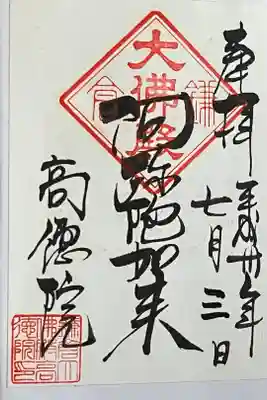 奉拝
平成卅年
七月三日
大佛殿
鎌倉
阿弥陀如来
高徳院